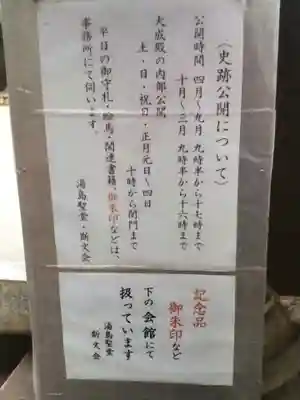 （史跡公開について）
公開時間 四月〜九月 九時半から十七時まで
十月〜三月 九時半から十六時まで
大成殿の内部公開
土・日・祝日・正月元日〜四日
十時から閉門まで
平日の御守札・絵馬・関連書籍、御朱印などは、
事務所にて伺います。
湯島聖堂・斯文会
記念品
御朱印など
下の会館にて
扱っています
湯島聖堂
斯文会